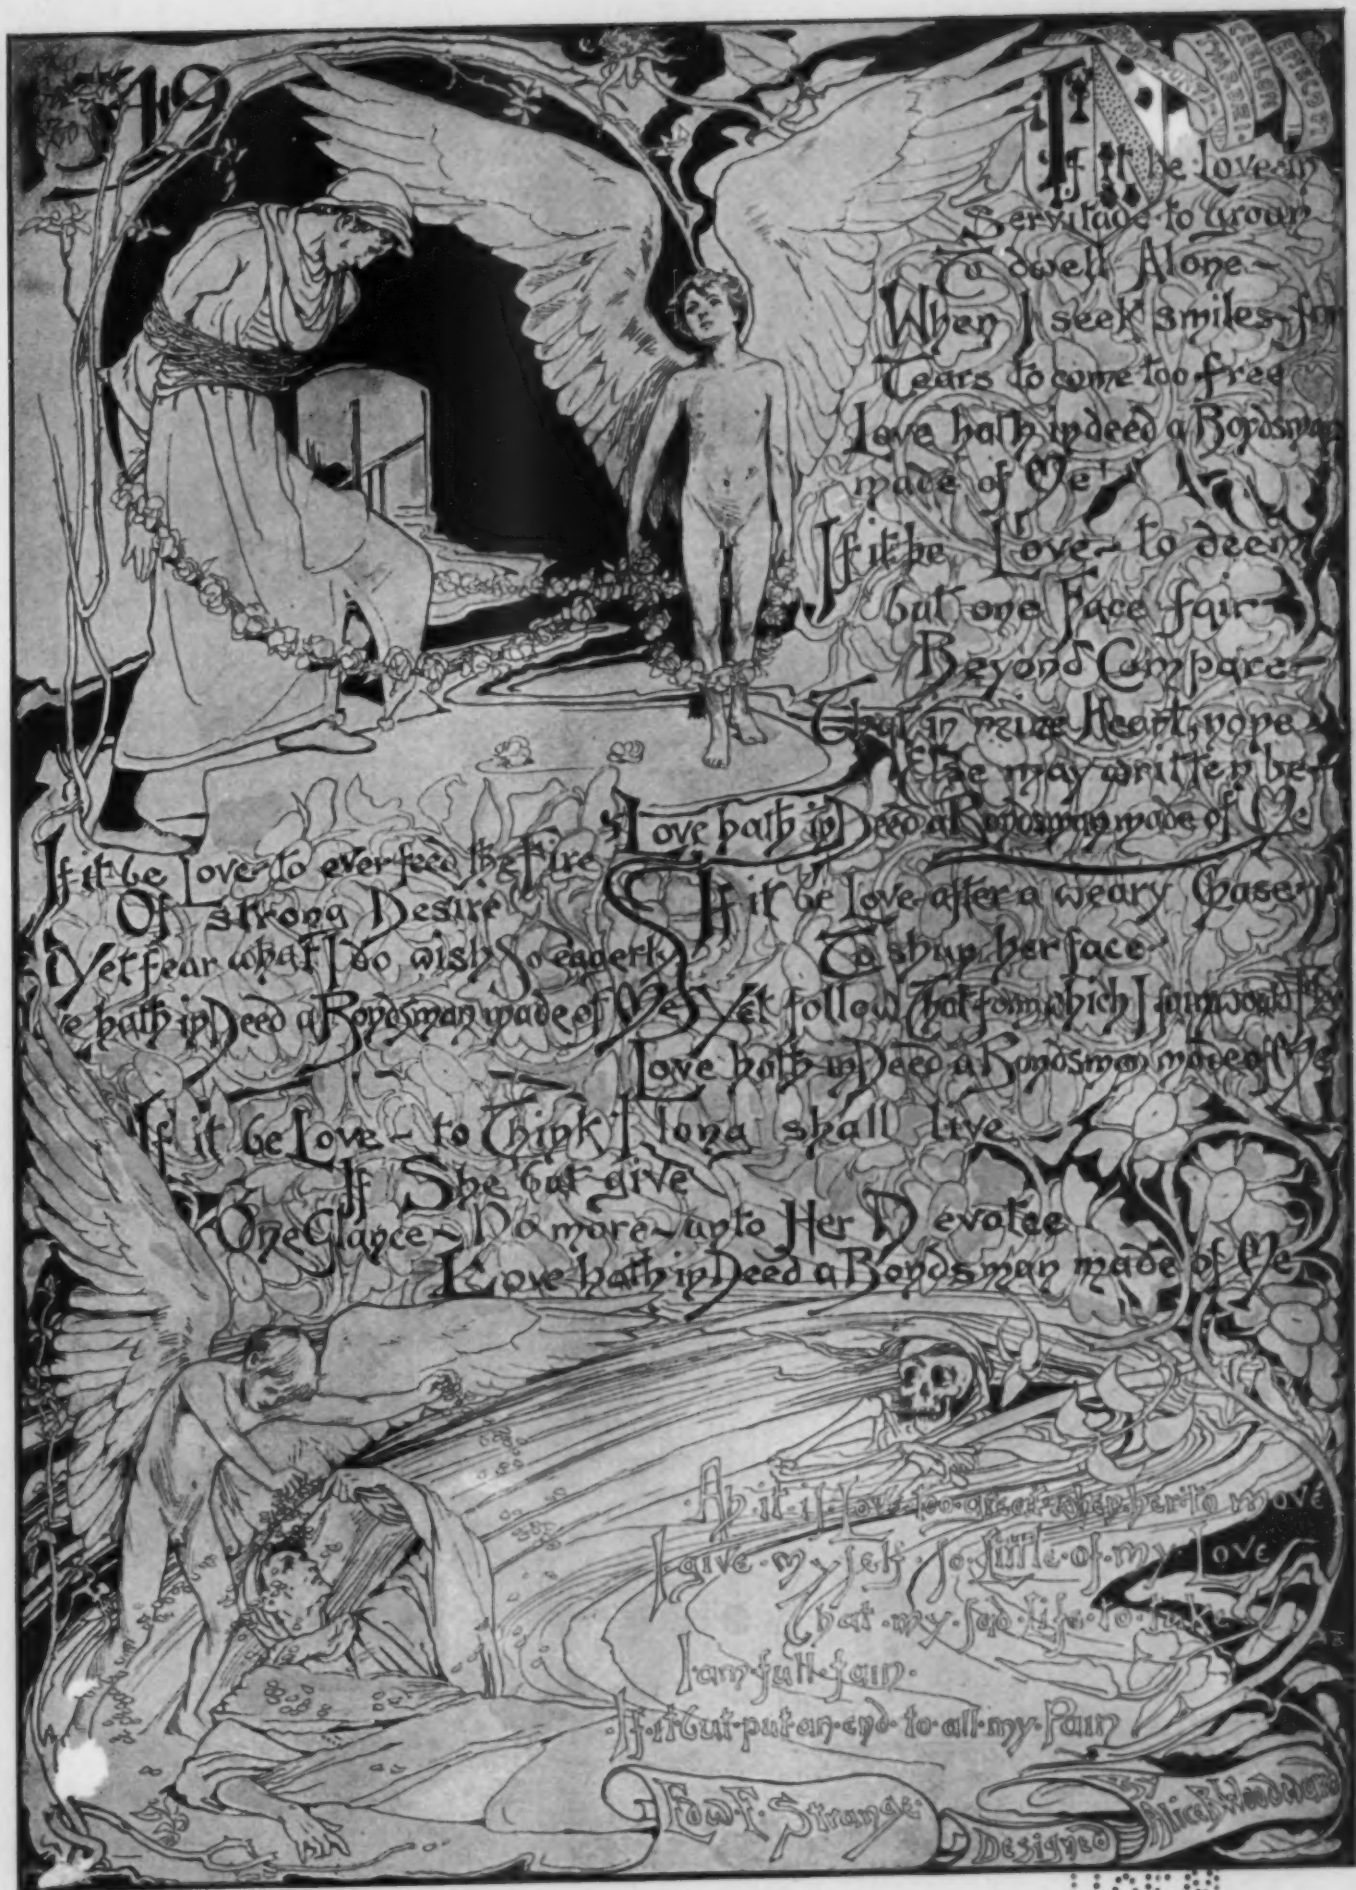 49
If it be Love in
Servitude to groan
To dwell Alone ~
When I seek smiles ~ for
Tears to come too free
Love hath indeed a Bondsman
made of Me!
If it be Love ~ to deem
but one Face fair
Beyond Compare ~
That in mine Heart, none
Else may written be ~
Love hath inDeed a Bondsman made of Me
If it be Love to ever feed the Fire
Of strong Desire
Yet fear what I do wish So eagerly
hath inDeed a Bondsman made of Me
If it be Love after a weary Chase
To shun her face
Yet follow That form which I fain would
Love hath inDeed a Bondsman made of Me
If it be Love ~ to Think I long shall live
If She but give
One Glance ~ No more ~ unto Her Devotee
Love hath inDeed a Bondsman made of Me
Ah·it·is·love·too·great·when·her·to move
I·give·my self·so·little·of·my·Love
that·my·sad·life·to·take
I·am·full·fain·
If·it·but·put·an·end·to·all·my·Pain
Edw·F·Strange·
Designed
Alice B Woodward